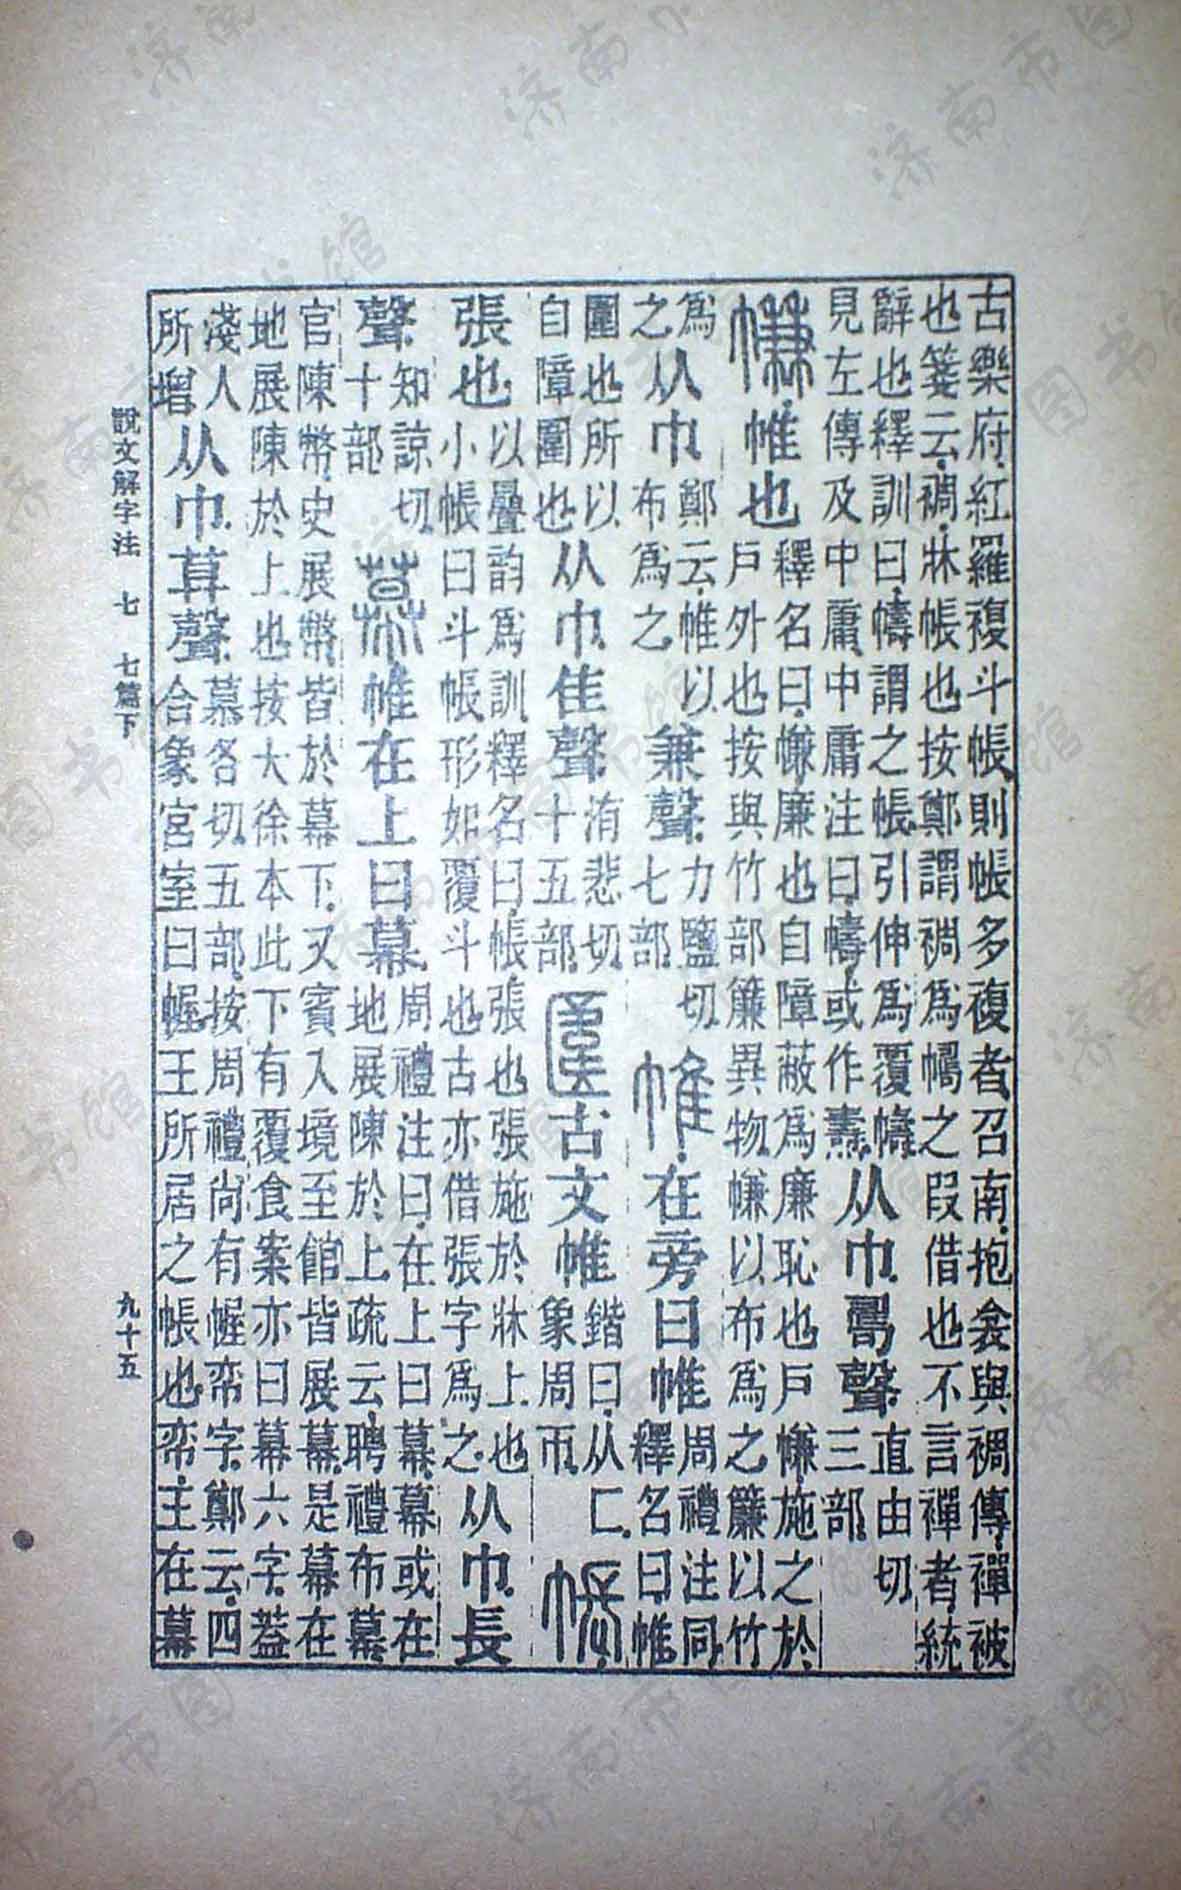 古樂府紅羅複斗帳則帳多複者召南抱衾與裯傳襌被
也箋云裯牀帳也按鄭謂裯爲幬之叚借也不言襌者統
辭也釋訓曰幬謂之帳引伸爲覆幬見左傳及中庸中庸注曰幬或作燾从巾𠷎聲直由切三部
㡘帷也釋名曰㡘廉也自障蔽爲廉恥也戶㡘施之於戶外也按與竹部簾異物㡘以布爲之簾以竹
爲之从巾鄭云帷以布爲之兼聲力鹽切七部帷在旁曰帷周禮注同釋名曰帷
圍也所以自障圍也从巾隹聲洧悲切十五部古文帷鍇曰从匚象周帀帳
張也以疊韵爲訓釋名曰帳張也張施於牀上也小帳曰斗帳形如覆斗也古亦借張字爲之从巾長
聲知諒切十部幕帷在上曰幕周禮注曰在上曰幕幕或在地展陳於上疏云聘禮布幕
官陳幣史展幣皆於幕下又賓入境至館皆展幕是幕在
地展陳於上也按大徐本此下有覆食案亦曰幕六字葢
淺人所增从巾莫聲慕各切五部按周禮尚有幄帟字鄭云四合象宮室曰幄王所居之帳也帟主在幕
說文解字注 七 七篇下 九十五
济南市图书馆